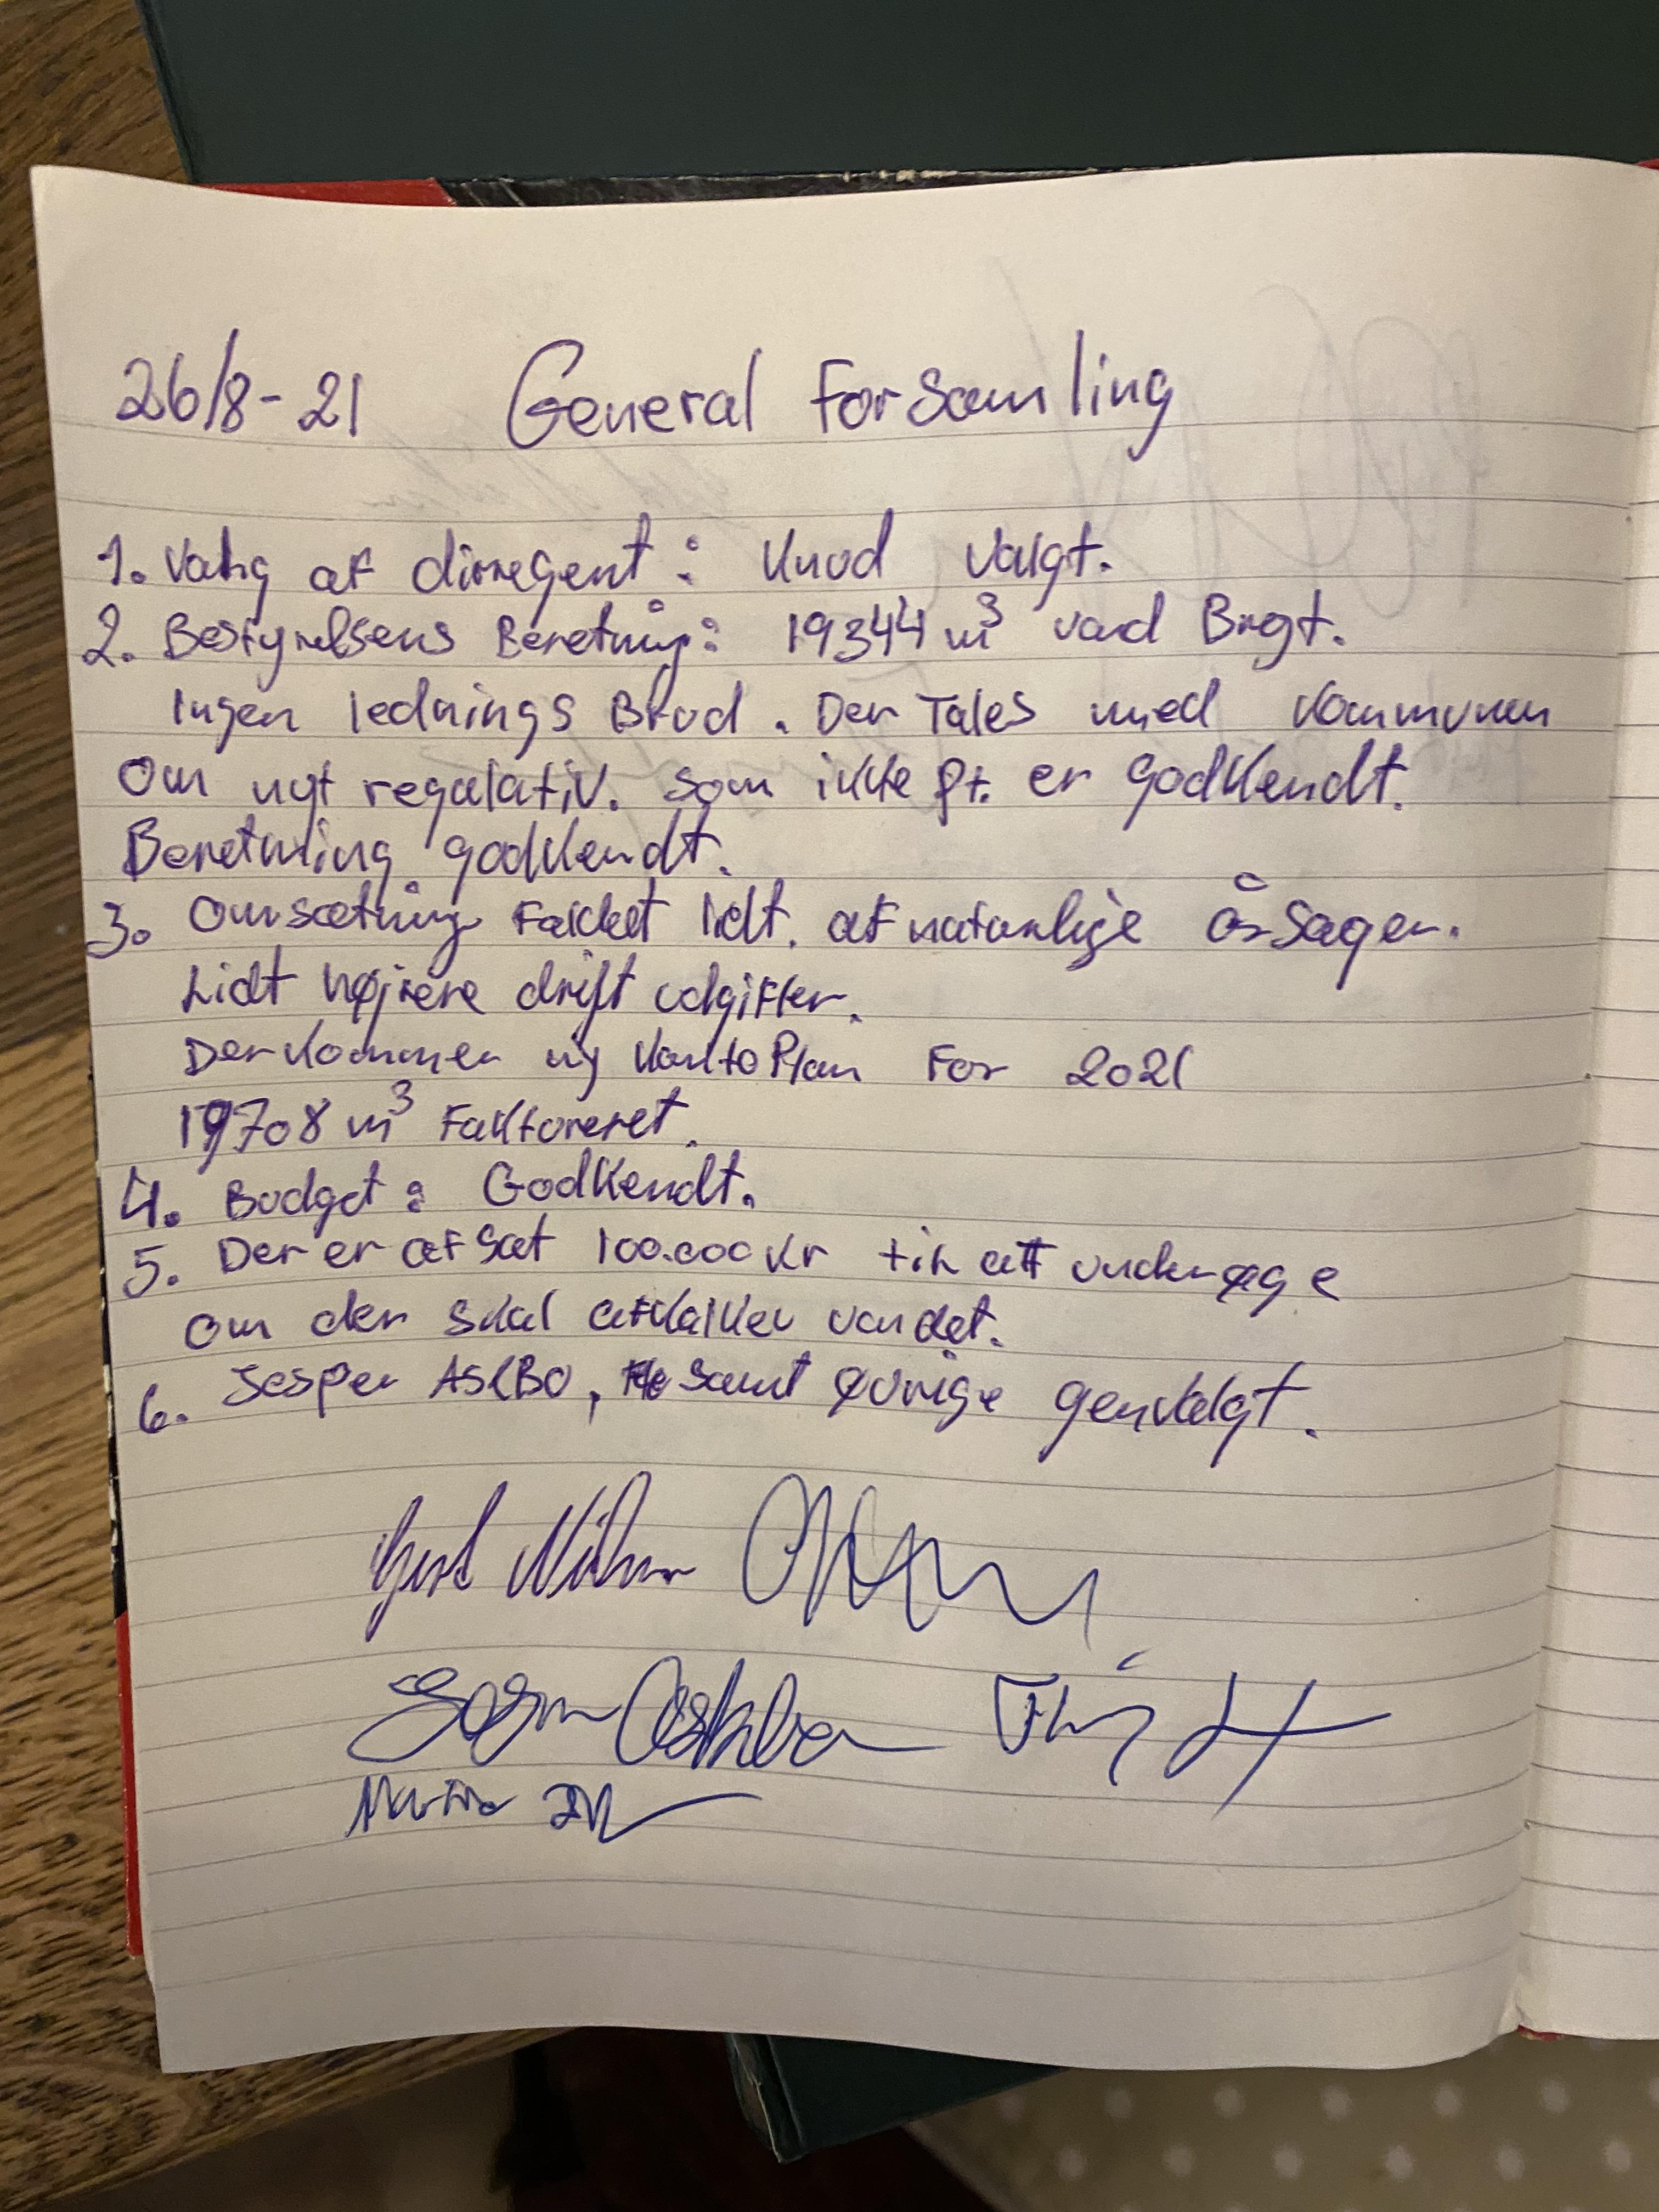 26/8-21 General Forsamling
1. Valg af dirregent: Knud valgt.
2. Bestyrelsens Beretning: 19344 m³ vand Brgt.
Ingen lednings Brud. Der Tales med Kommunen
Om nyt regulativ. som ikke pt. er godkendt.
Beretning godkendt.
3. Omsætning Faldet lidt. af naturlige årsager.
Lidt højere drift udgifter.
Der kommer ny KontoPlan For 2021
19708 m³ Faktureret.
4. Budget: Godkendt.
5. Der er af sat 100.000 kr til att undersøge
om der skal afkalkes vandet.
6. Jesper ASKBO, samt øvrige genvalgt.